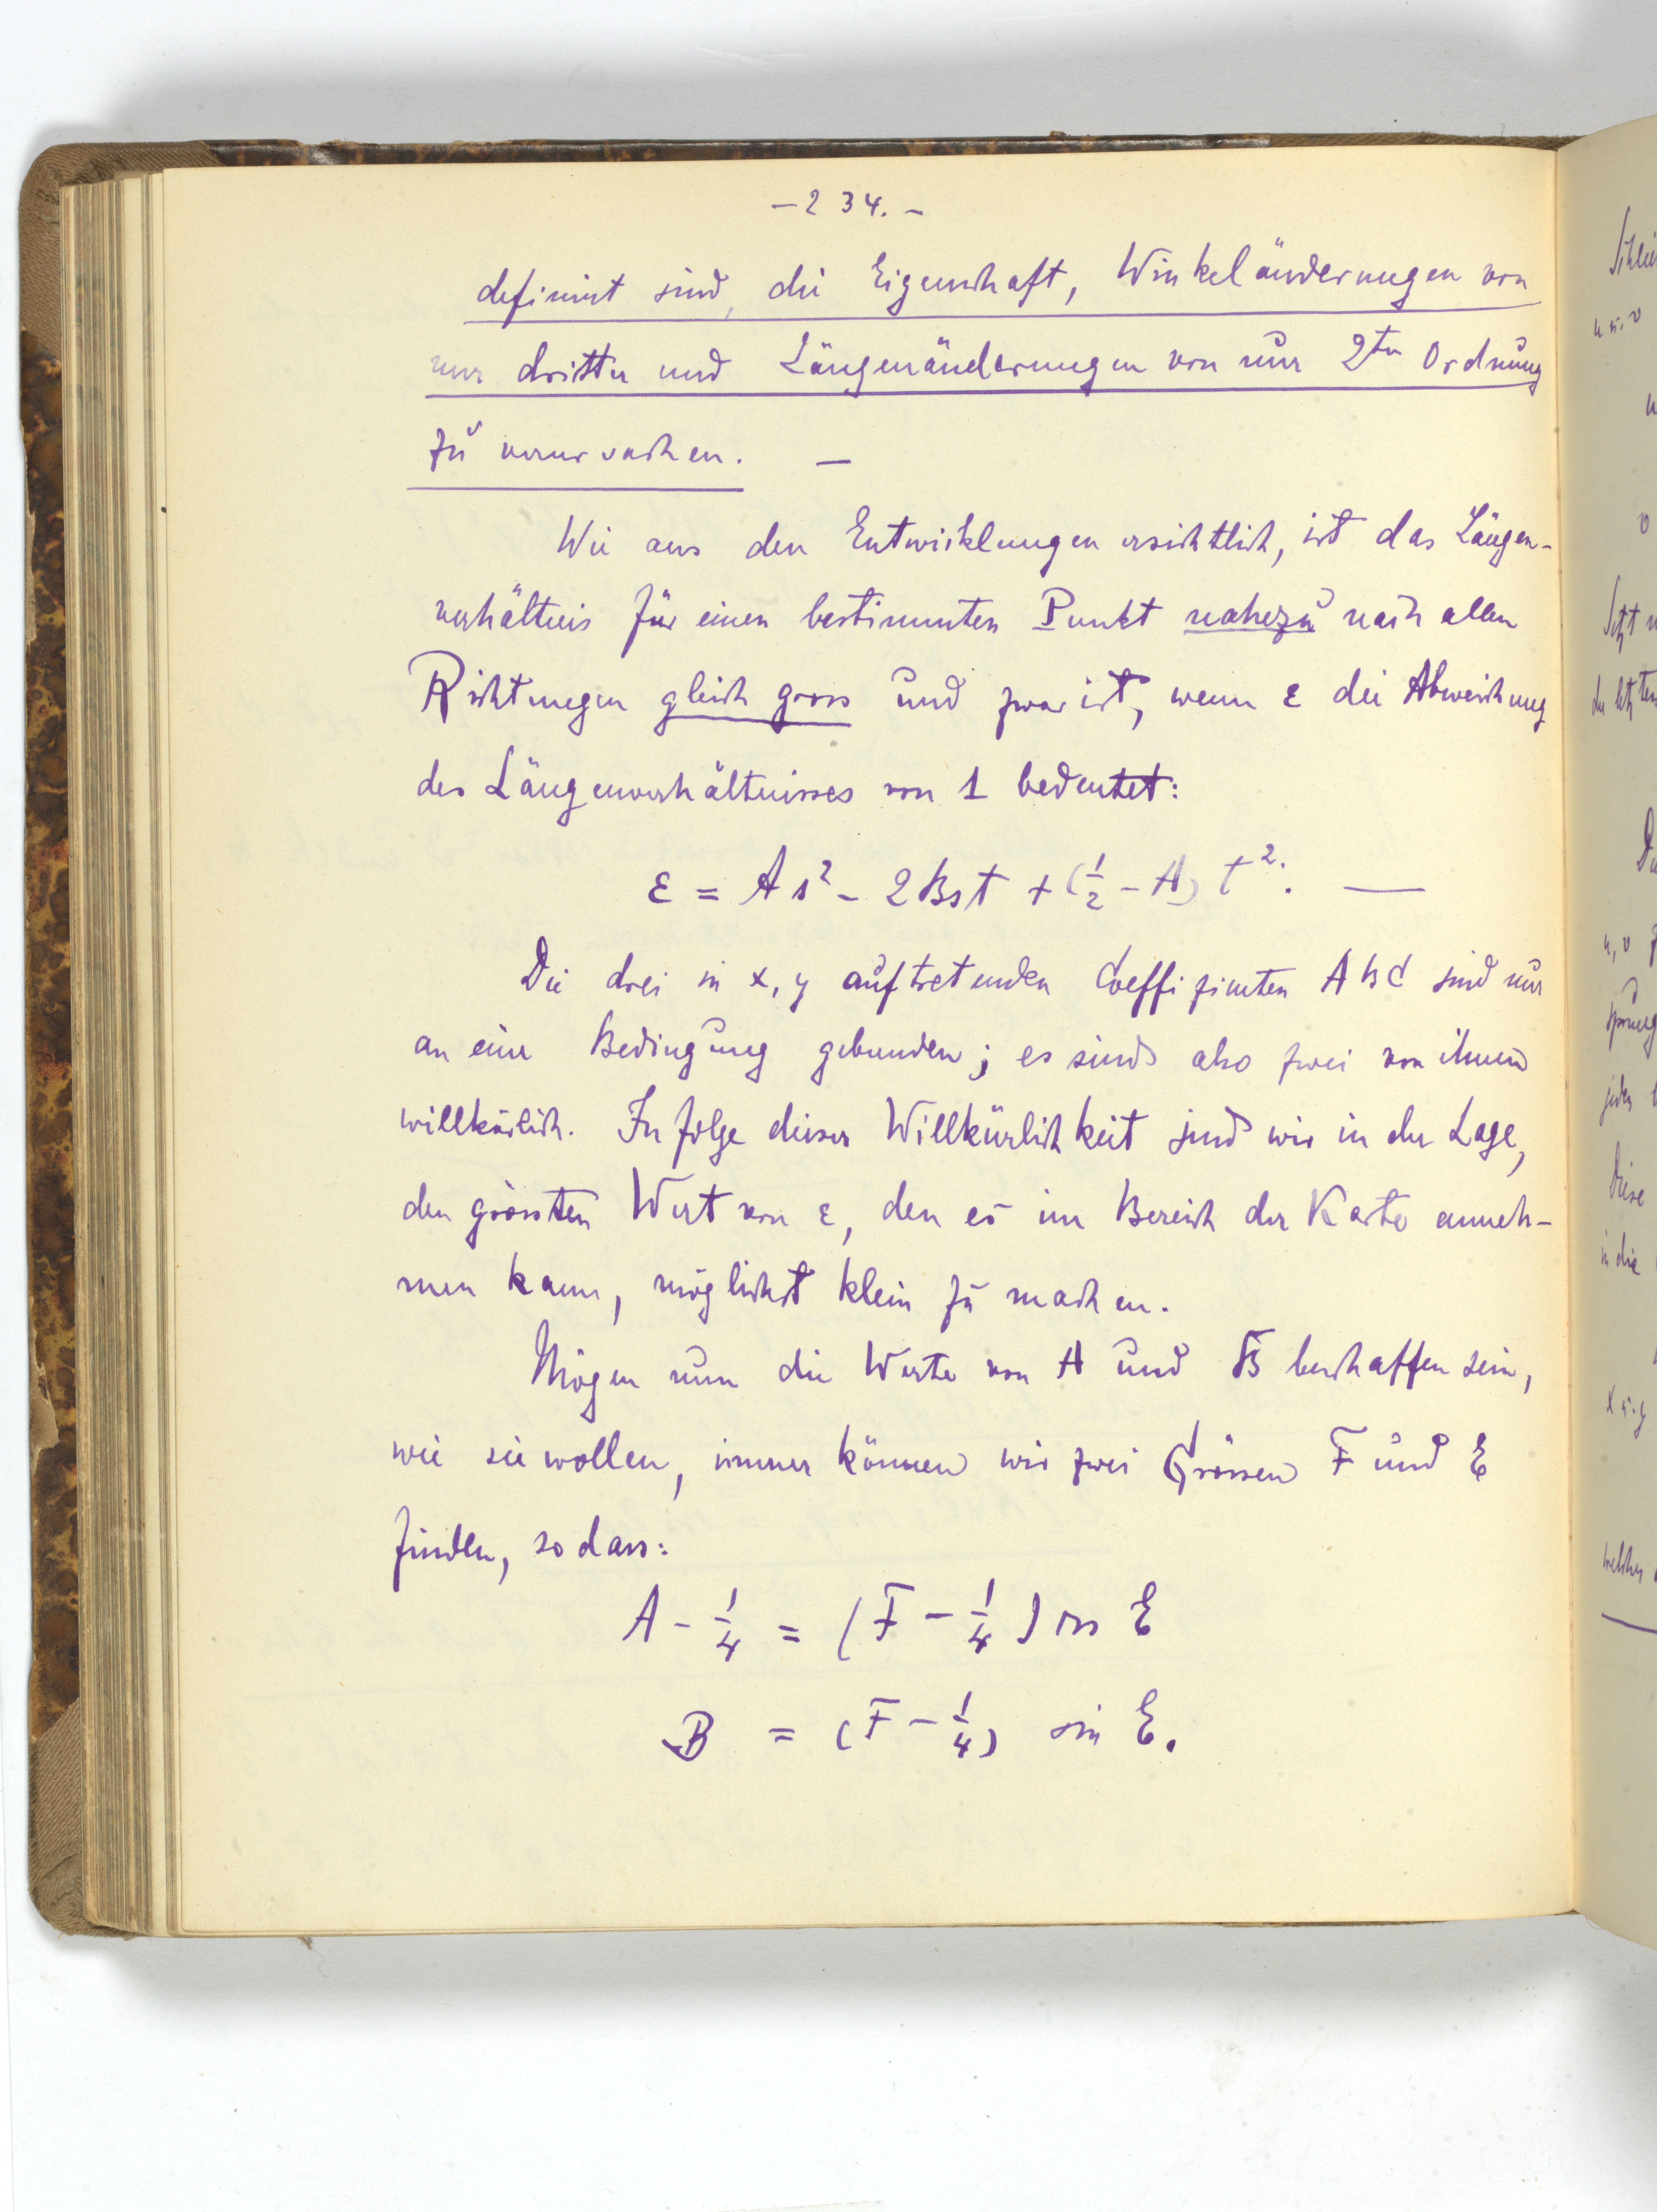 – 234. –
definirt sind, die Eigenschaft, Winkeländerungen von
nur dritter und Längenänderungen von nur 2ter Ordnung
zu verursachen. –
Wie aus den Entwicklungen ersichtlich, ist das Längen-
verhältnis für einen bestimmten Punkt nahezu nach allen
Richtungen gleich gross und zwar ist, wenn ε die Abweichung
des Längenverhältnisses von 1 bedeutet:
ε = As² - 2Bst + (1/2 - A) t². —
Die drei in x, y auftretenden Coeffizienten A B C sind nur
an eine Bedingung gebunden; es sind also zwei von ihnen
willkürlich. Infolge dieser Willkürlichkeit sind wir in der Lage,
den grössten Wert von ε, den es im Bereich der Karte anneh-
men kann, möglichst klein zu machen.
Mögen nun die Werte von A und B beschaffen sein,
wie sie wollen, immer können wir zwei Grössen F und E
finden, so dass:
A - 1/4 = (F - 1/4) cos E
B = (F - 1/4) sin E.
Setzt
Diese
in die